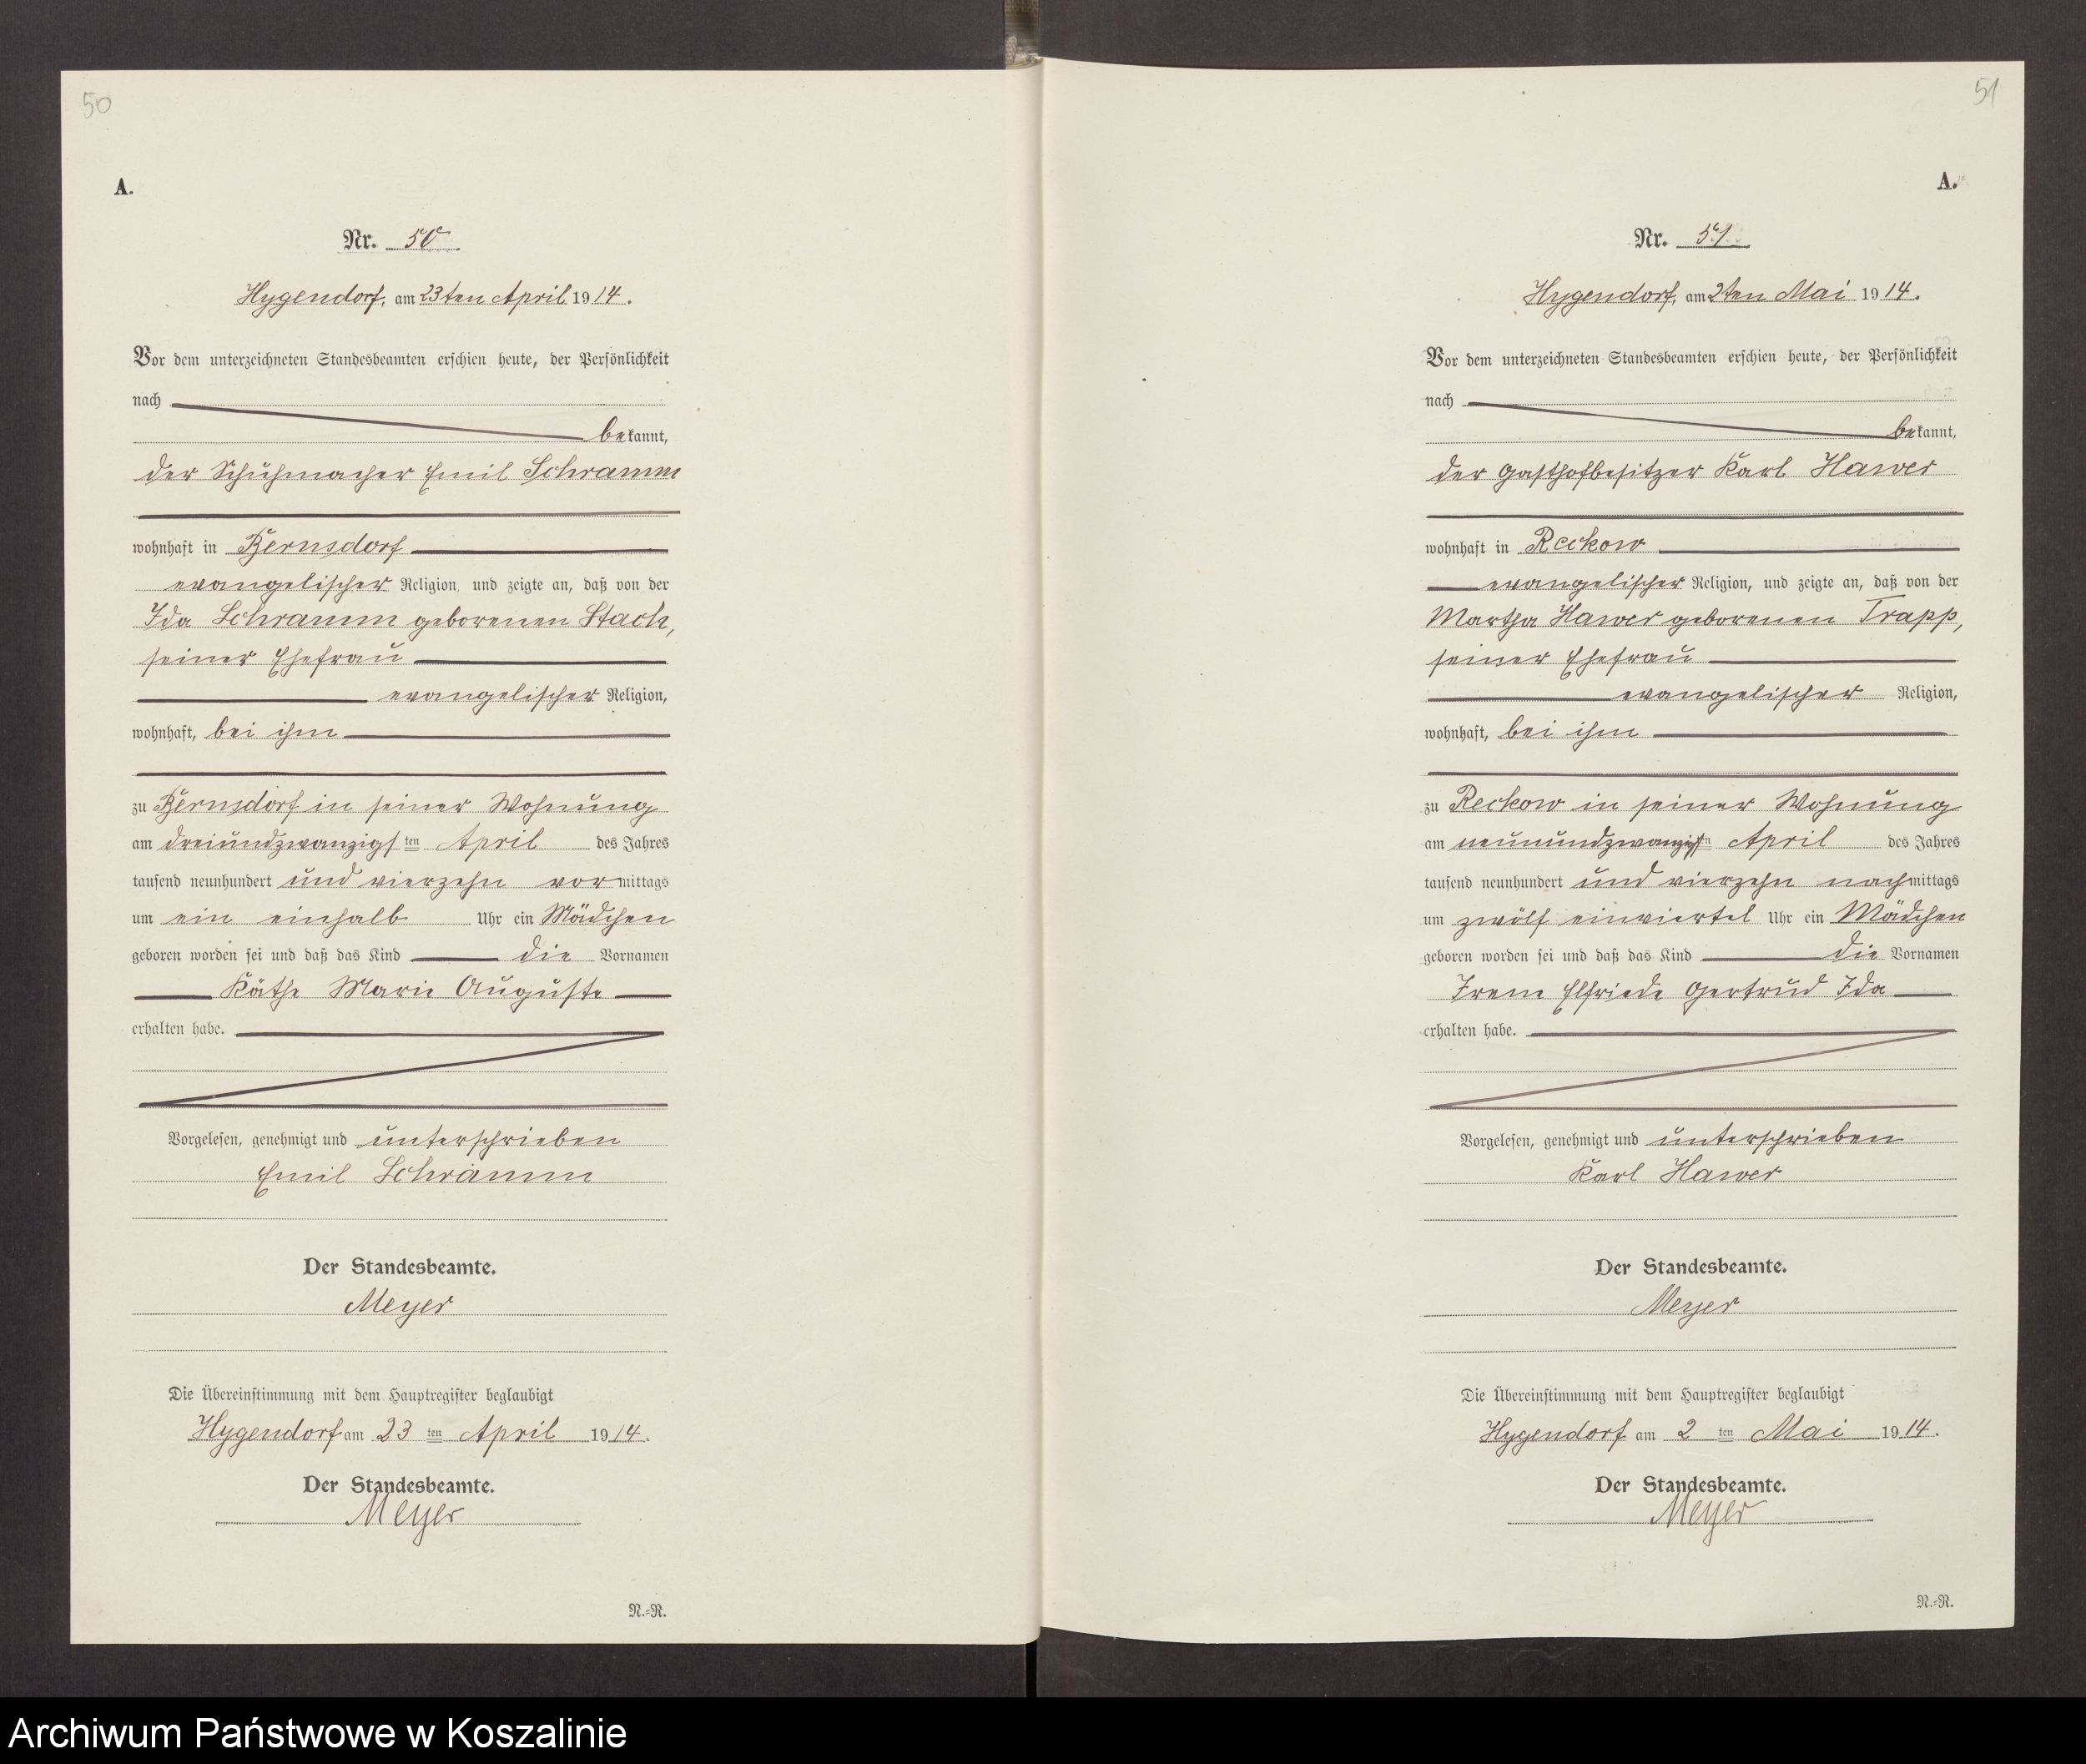 50
A.
Nr. 50
Hygendorf, am 23ten April 1914.
Vor dem unterzeichneten Standesbeamten erschien heute, der Persönlichkeit
nach
bekannt,
der Schuhmacher Emil Schramm
wohnhaft in Bernsdorf
evangelischer Religion, und zeigte an, daß von der
Ida Schramm geborenen Stach,
seiner Ehefrau
evangelischer Religion,
wohnhaft, bei ihm
zu Bernsdorf in seiner Wohnung
am dreiundzwanzigsten April des Jahres
tausend neunhundert und vierzehn vormittags
um ein einhalb Uhr ein Mädchen
geboren worden sei und daß das Kind die Vornamen
Käthe Marie Auguste
erhalten habe.
Vorgelesen, genehmigt und unterschrieben
Emil Schramm
Der Standesbeamte.
Meyer
Die Übereinstimmung mit dem Hauptregister beglaubigt
Hygendorf am 23 ten April 1914.
Der Standesbeamte.
Meyer
N.-R.
51
A.
Nr. 51
Hygendorf, am 2ten Mai 1914.
Vor dem unterzeichneten Standesbeamten erschien heute, der Persönlichkeit
nach
bekannt,
der Gasthofbesitzer Karl Hawer
wohnhaft in Reckow
evangelischer Religion, und zeigte an, daß von der
Martha Hawer geborenen Trapp,
seiner Ehefrau
evangelischer Religion,
wohnhaft, bei ihm
zu Reckow in seiner Wohnung
am neunundzwanzigsten April des Jahres
tausend neunhundert und vierzehn nachmittags
um zwölf einviertel Uhr ein Mädchen
geboren worden sei und daß das Kind die Vornamen
Irene Elfriede Gertrud Ida
erhalten habe.
Vorgelesen, genehmigt und unterschrieben
Karl Hawer
Der Standesbeamte.
Meyer
Die Übereinstimmung mit dem Hauptregister beglaubigt
Hygendorf am 2 ten Mai 1914.
Der Standesbeamte.
Meyer
N.-R.
Archiwum Państwowe w Koszalinie